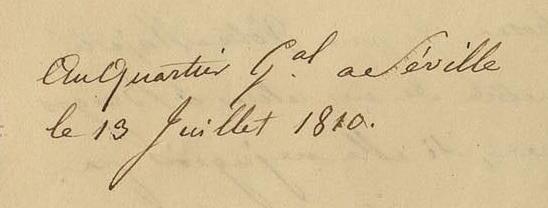 Au Quartier G.al a Séville
le 13 Juillet 1810.